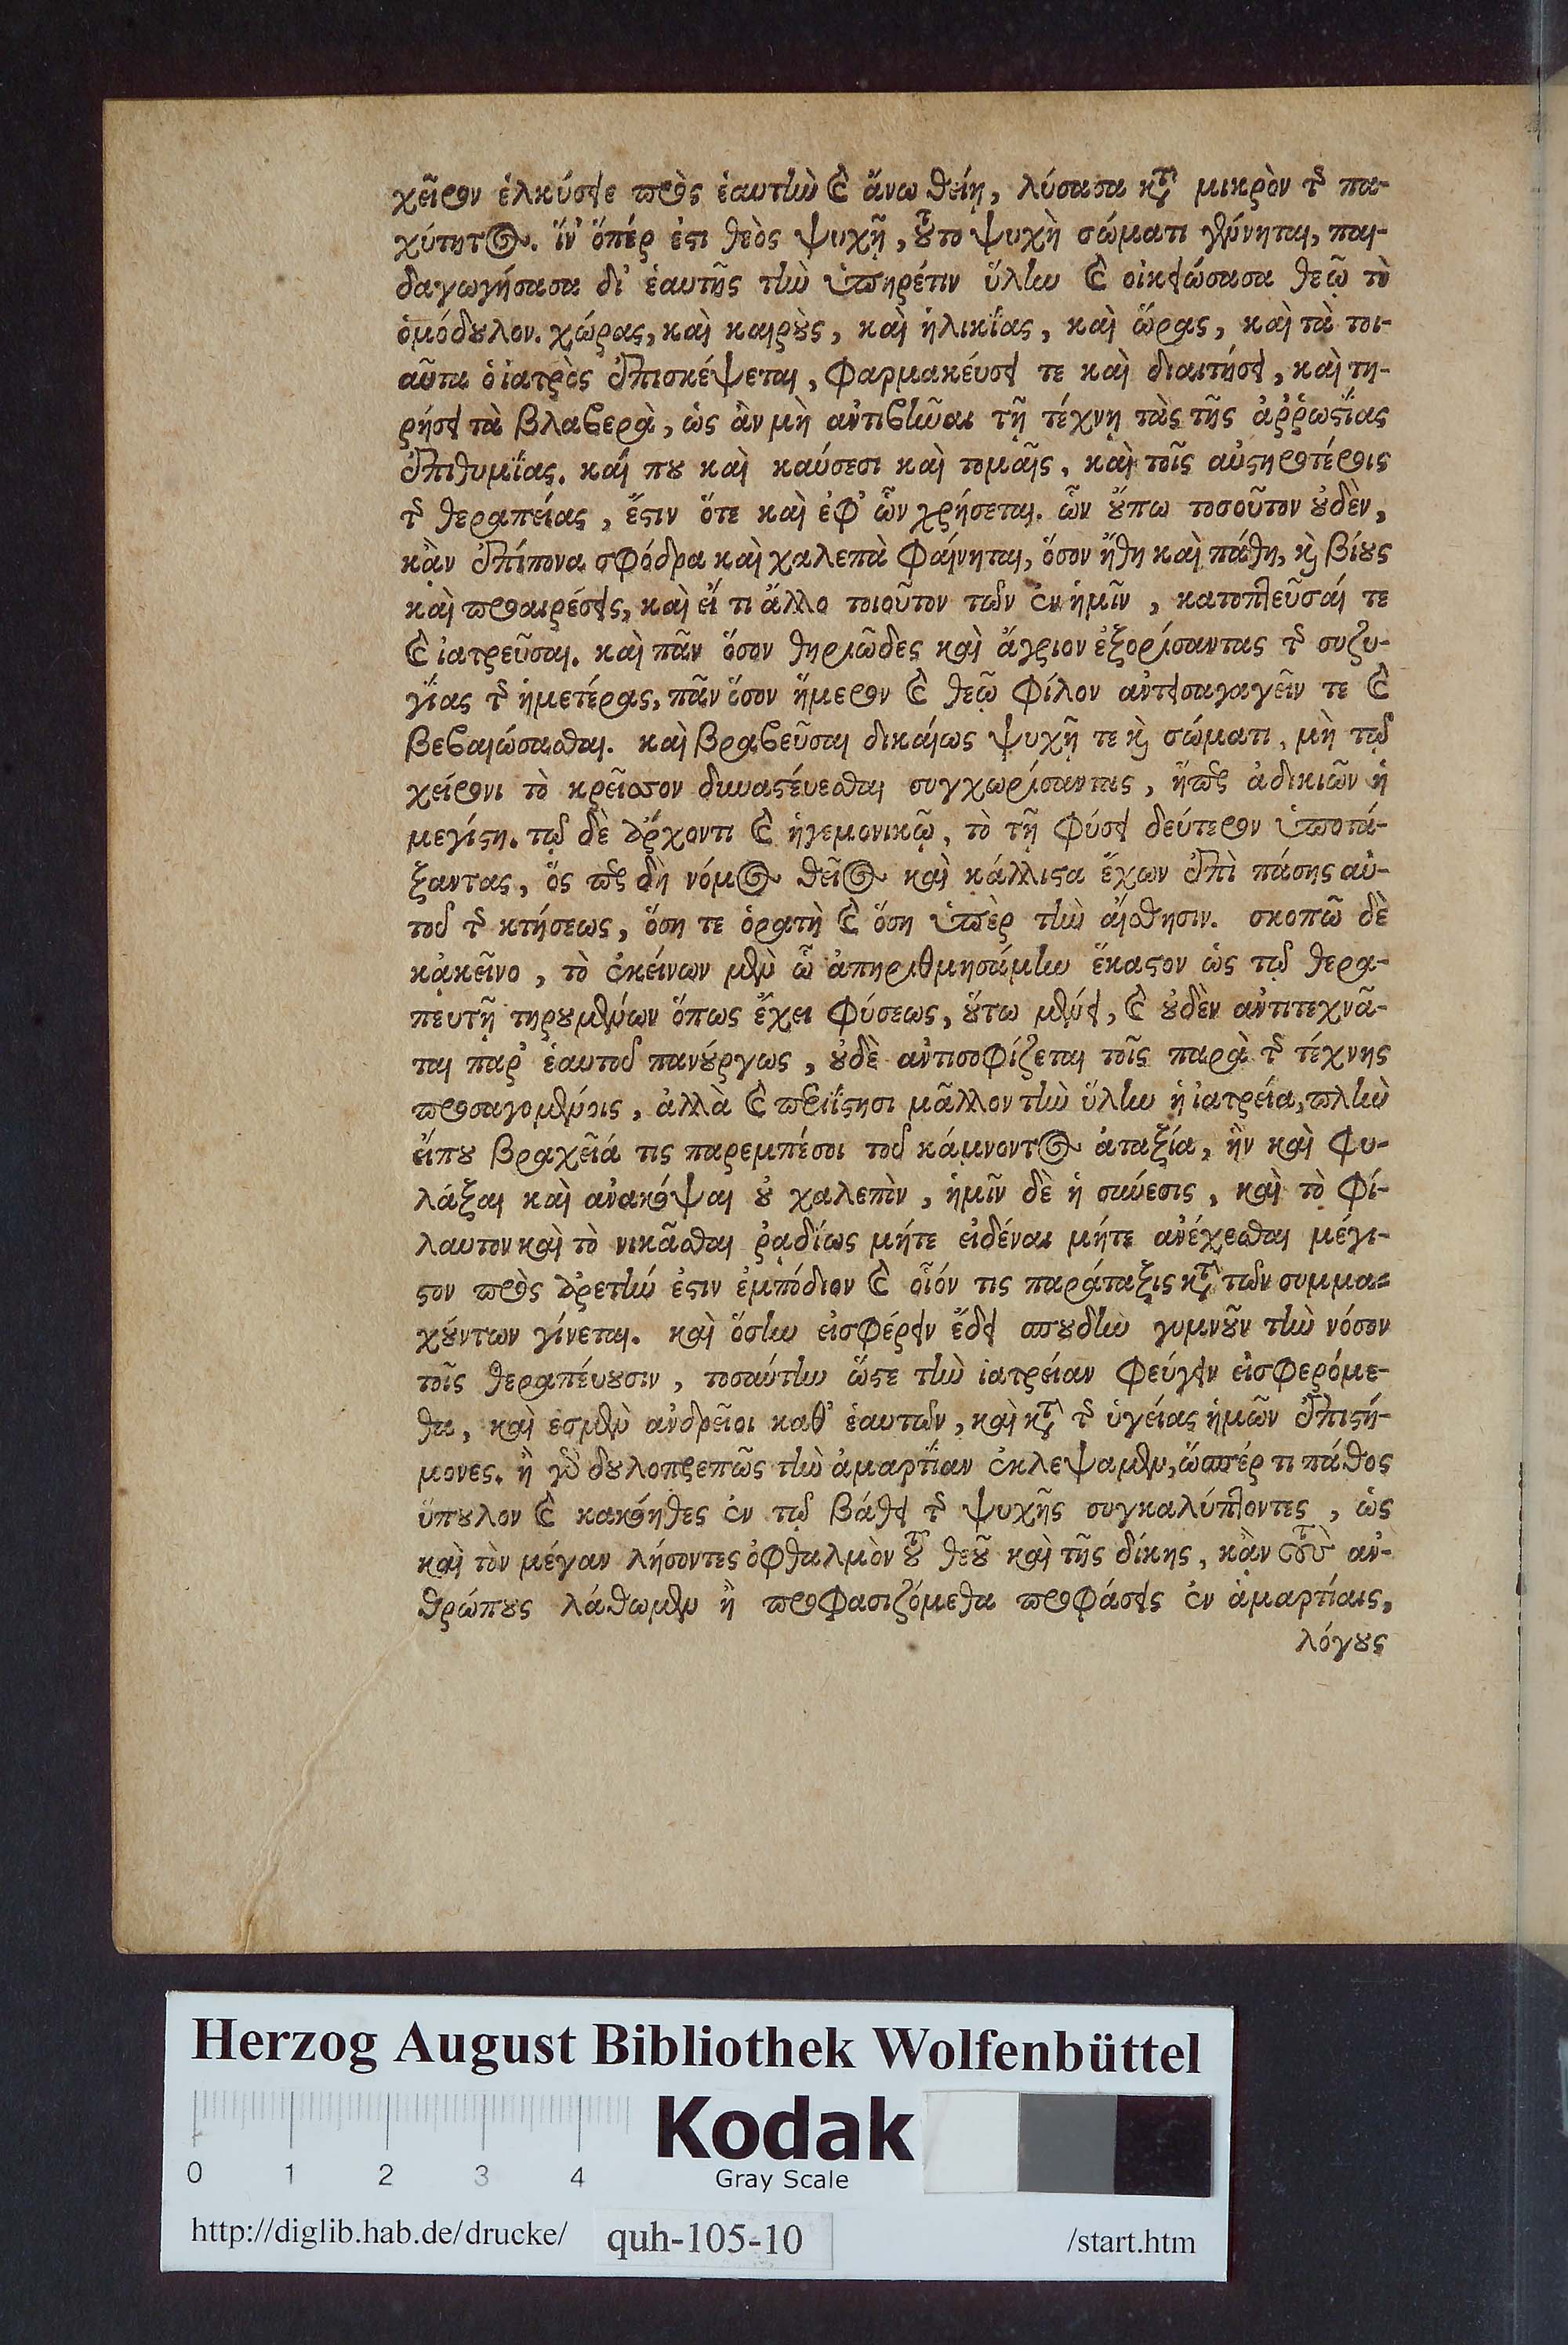 χεῖρον ἑλκύσειε πρὸς ἑαυτὴν καὶ ἄνω θείη, λύσασα κατὰ μικρὸν τῆς πα-
χύτητος. ἵν' ὅπέρ ἐστι θεὸς ψυχῇ, τοῦτο ψυχὴ σώματι γένηται, παι-
δαγωγήσασα δι' ἑαυτῆς τὴν ὑπηρέτιν ὕλην καὶ οἰκειώσασα θεῷ τὸ
ὁμόδουλον. χώρας, καὶ καιροὺς, καὶ ἡλικίας, καὶ ὥρας, καὶ τὰ τοι-
αῦτα ὁ ἰατρὸς ἐπισκέψεται, φαρμακεύσει τε καὶ διαιτήσει, καὶ τη-
ρήσει τὰ βλαβερὰ, ὡς ἂν μὴ ἀντιβῶσι τῇ τέχνῃ τὰς τῆς ἀῤῥωστίας
ἐπιθυμίας. καί που καὶ καύσεσι καὶ τομαῖς, καὶ τοῖς αὐστηροτέροις
τῆς θεραπείας, ἔστιν ὅτε καὶ ἐφ' ὧν χρήσεται. ὧν οὔπω τοσοῦτον οὐδὲν,
κἂν ἐπίπονα σφόδρα καὶ χαλεπὰ φαίνηται, ὅσον ἤθη καὶ πάθη, καὶ βίους
καὶ προαιρέσεις, καὶ εἴ τι ἄλλο τοιοῦτον τῶν ἐν ἡμῖν, κατοπτεῦσαί τε
καὶ ἰατρεῦσαι. καὶ πᾶν ὅσον θηριῶδες καὶ ἄγριον ἐξορίσαντας τῆς συζυ-
γίας τῆς ἡμετέρας, πᾶν ὅσον ἥμερον καὶ θεῷ φίλον ἀντεισαγαγεῖν τε καὶ
βεβαιώσασθαι. καὶ βραβεῦσαι δικαίως ψυχῇ τε καὶ σώματι, μὴ τῷ
χείρονι τὸ κρεῖσσον δυναστεύεσθαι συγχωρίσαντας, ἥπερ ἀδικιῶν ἡ
μεγίστη. τῷ δὲ ἄρχοντι καὶ ἡγεμονικῷ, τὸ τῇ φύσει δεύτερον ὑποτά-
ξαντας, ὅσπερ δὴ νόμος θεῖος καὶ κάλλιστα ἔχων ἐπὶ πάσης αὐ-
τοῦ τῆς κτήσεως, ὅση τε ὁρατὴ καὶ ὅση ὑπὲρ τὴν αἴσθησιν. σκοπῶ δὲ
κἀκεῖνο, τὸ ἐκείνων μὲν ὧ ἀπηριθμησάμην ἕκαστον ὡς τῷ θερα-
πευτῇ τηρουμένων ὅπως ἔχει φύσεως, οὕτω μένει, καὶ οὐδὲν ἀντιτεχνᾶ-
ται παρ' ἑαυτοῦ πανούργως, οὐδὲ ἀντισοφίζεται τοῖς παρὰ τῆς τέχνης
προσαγομένοις, ἀλλὰ καὶ περιίστησι μᾶλλον τὴν ὕλην ἡ ἰατρεία, πλὴν
εἴπου βραχεῖά τις παρεμπέσοι τοῦ κάμνοντος ἀταξία, ἣν καὶ φυ-
λάξαι καὶ ἀνακόψαι οὐ χαλεπὸν, ἡμῖν δὲ ἡ σύνεσις, καὶ τὸ φί-
λαυτον καὶ τὸ νικᾶσθαι ῥᾳδίως μήτε εἰδέναι μήτε ἀνέχεσθαι μέγι-
στον πρὸς ἀρετήν ἐστιν ἐμπόδιον καὶ οἷόν τις παράταξις κατὰ τῶν συμμα-
χούντων γίνεται. καὶ ὅσην εἰσφέρειν ἔδει σπουδὴν γυμνοῦν τὴν νόσον
τοῖς θεραπεύουσιν, τοσαύτην ὥστε τὴν ἰατρείαν φεύγειν εἰσφερόμε-
θα, καὶ ἐσμὲν ἀνδρεῖοι καθ' ἑαυτῶν, καὶ κατὰ τῆς ὑγείας ἡμῶν ἐπιστή-
μονες. ἢ γὰρ δουλοπρεπῶς τὴν ἁμαρτίαν ἐκλέψαμεν, ὥσπέρ τι πάθος
ὕπουλον καὶ κακόηθες ἐν τῷ βάθει τῆς ψυχῆς συγκαλύπτοντες, ὡς
καὶ τὸν μέγαν λήσοντες ὀφθαλμὸν τοῦ θεοῦ καὶ τῆς δίκης, κἂν τοὺς ἀν-
θρώπους λάθωμεν ἢ προφασιζόμεθα προφάσεις ἐν ἁμαρτίαις,
λόγους
Herzog August Bibliothek Wolfenbüttel
0 1 2 3 4
Kodak
Gray Scale
http://diglib.hab.de/drucke/ quh-105-10 /start.htm